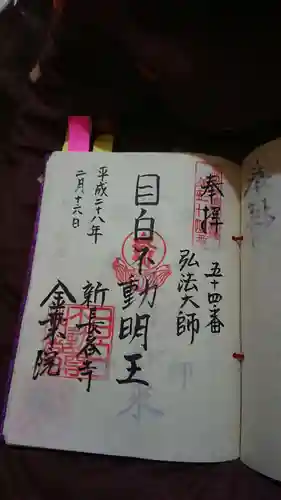 奉拝
五十四番
弘法大師
目白不動明王
新長谷寺
金乗院
平成二十八年
二月十六日